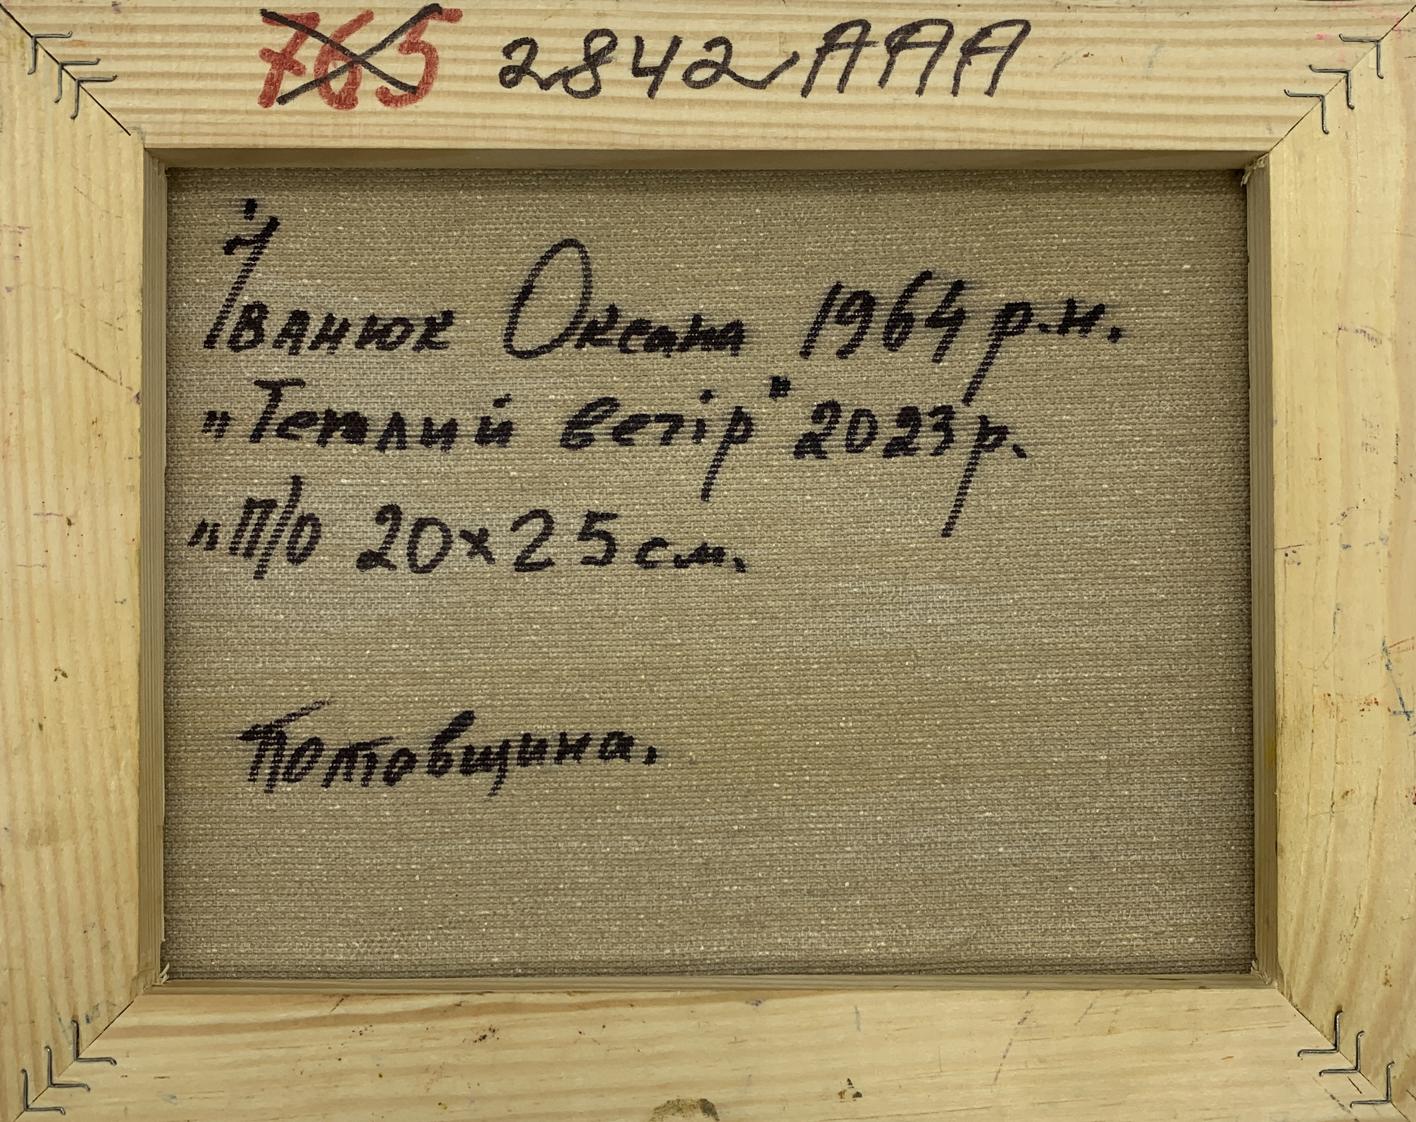 765 2842 AAA
Іванюк Оксана 1964 р.н.
„Теплий ветір" 2023р.
„П/О 20×25см.
Полтовщина.